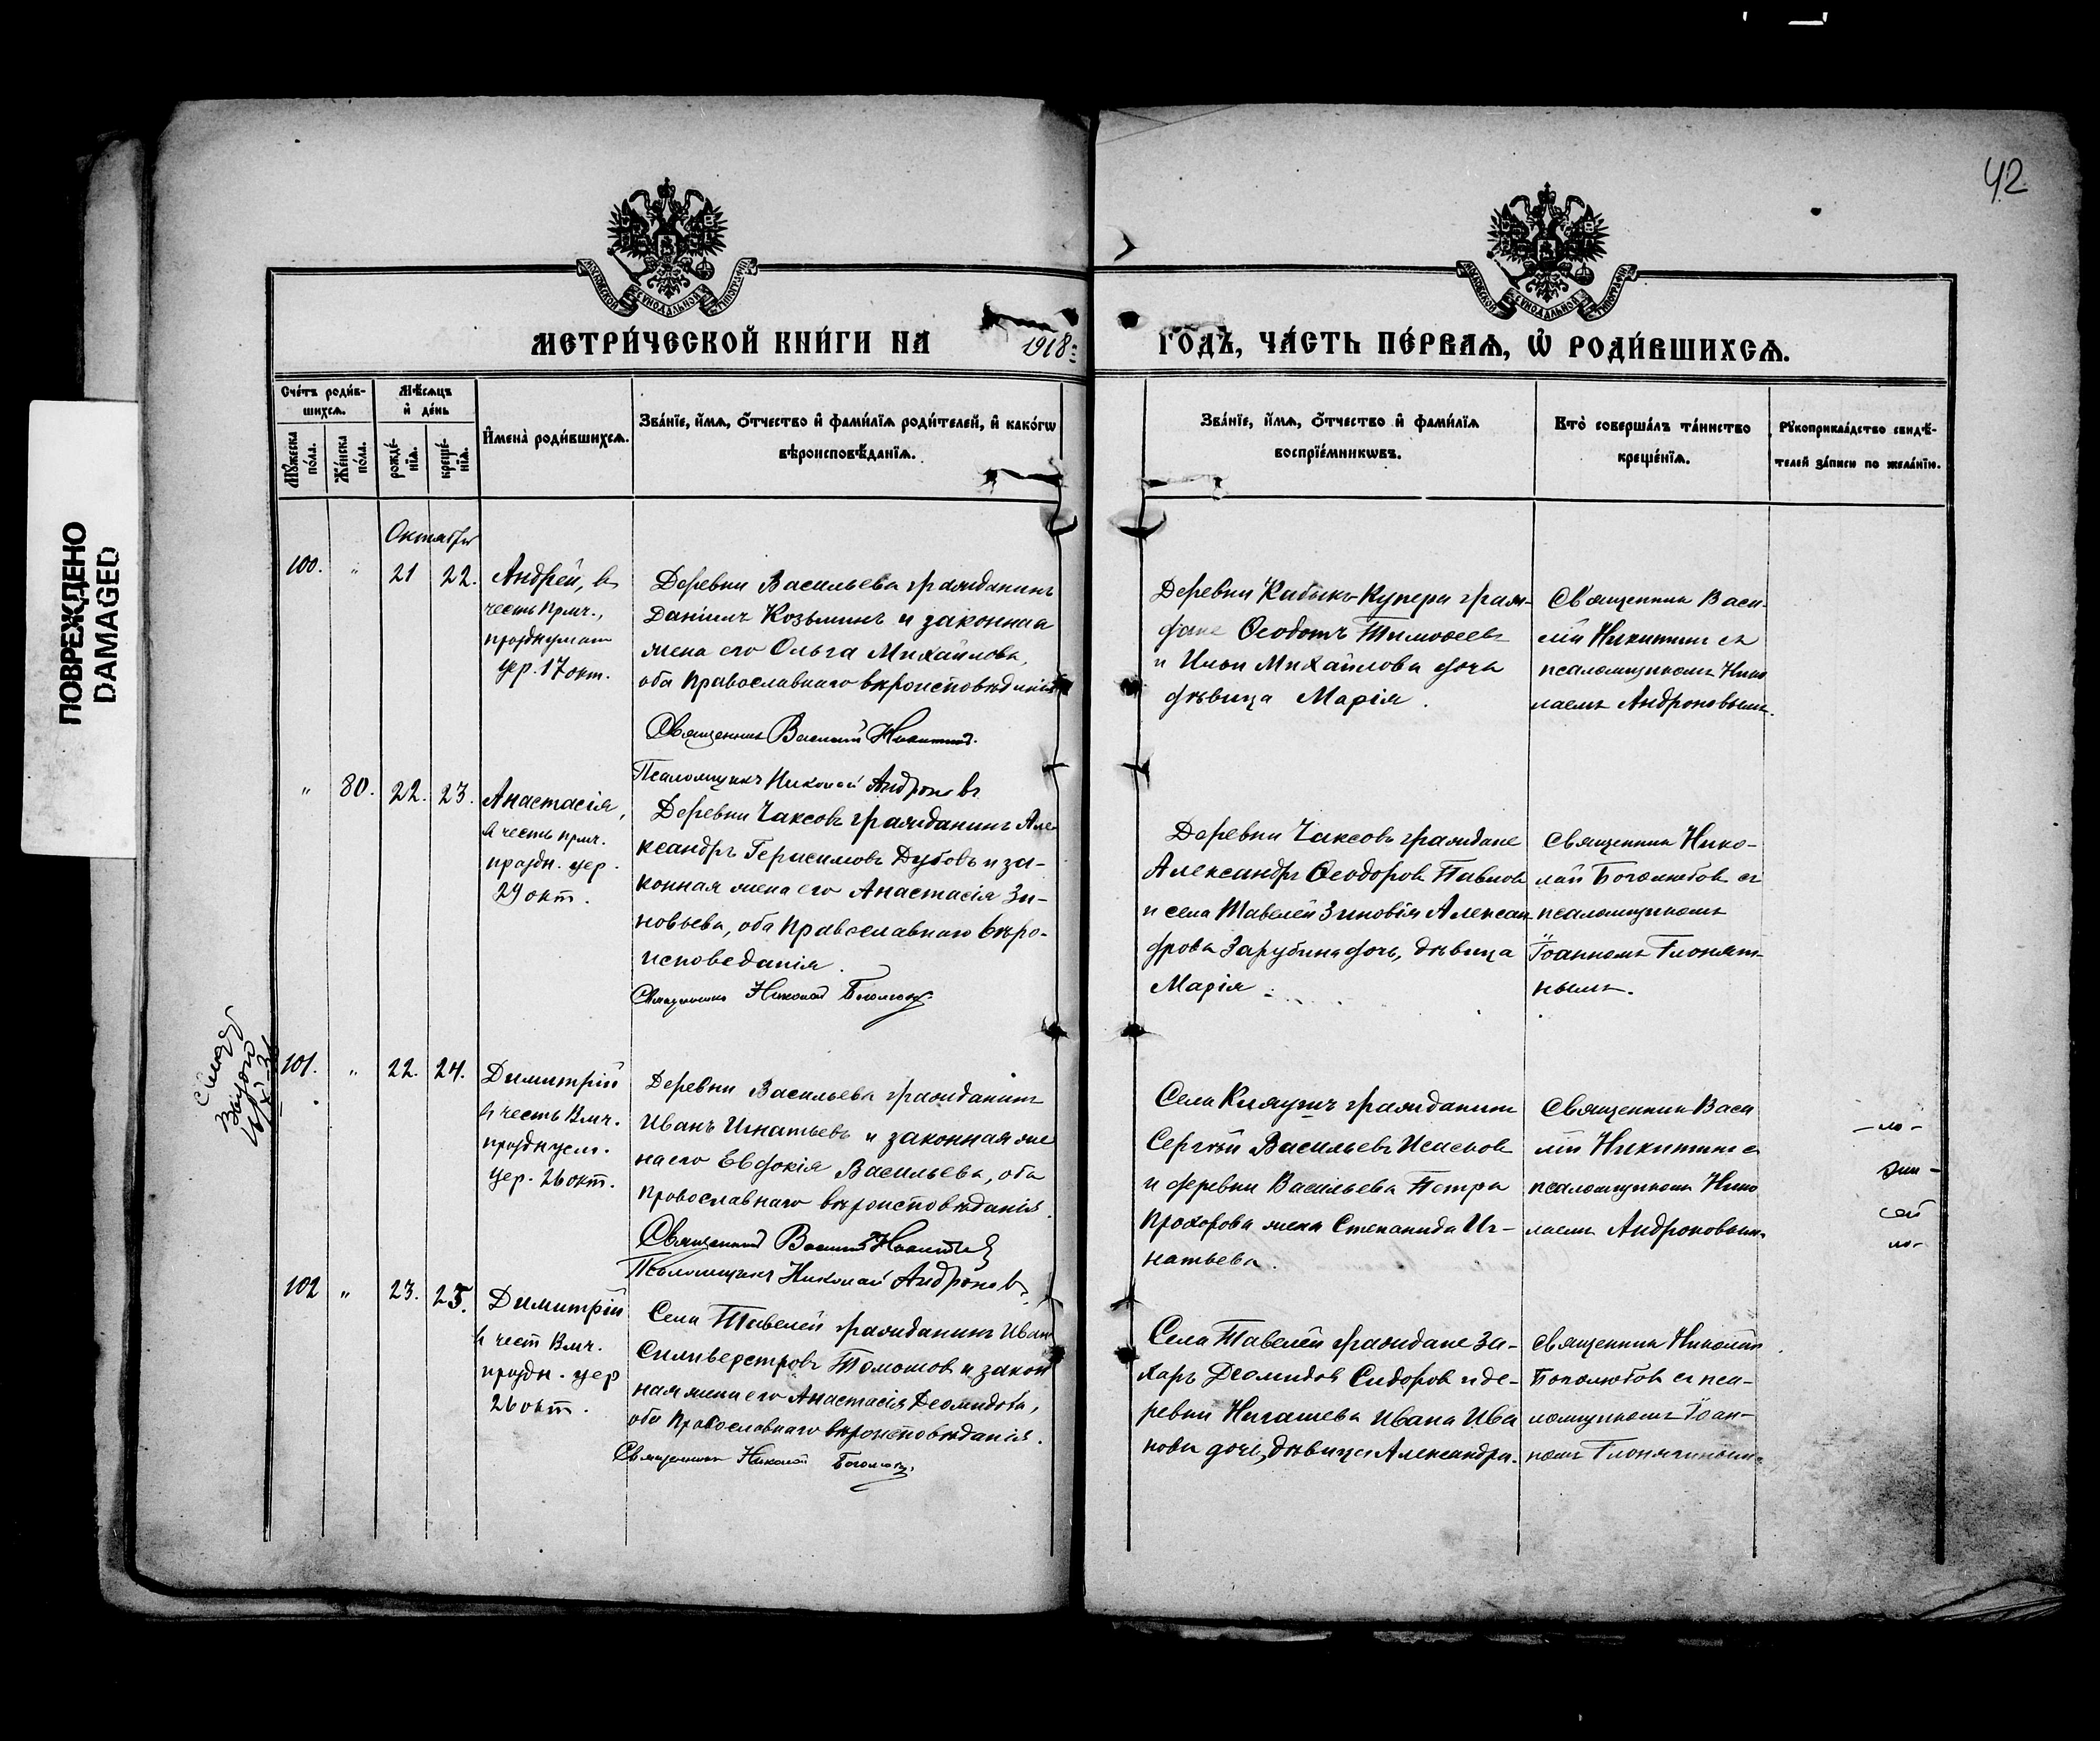 42
ПОВРЕЖДЕНО
DAMAGED
МОСКОВСКОЙ СѴНОДАЛЬНОЙ ТИПОГРАФІИ
МОСКОВСКОЙ СѴНОДАЛЬНОЙ ТИПОГРАФІИ
МЕТРИ́ЧЕСКОЙ КНИ́ГИ НА 1918 ГО́ДЪ, ЧА́СТЬ ПЕ́РВАѦ, Ѡ҆ РОДИ́ВШИХСѦ.
Сче́тъ роди́в-
шихсѧ.
Мꙋ́жеска
по́ла.
Же́нска
по́ла.
Мѣ́сѧцъ
и҆ де́нь
рожде́-
нїѧ.
креще́-
нїѧ.
И҆мена̀ роди́вшихсѧ.
Зва́нїе, и҆́мѧ, ѻ҆́тчество и҆ фами́лїѧ роди́телей, и҆ како́гѡ
вѣроисповѣ́данїѧ.
Зва́нїе, и҆́мѧ, ѻ҆́тчество и҆ фами́лїѧ
воспрїе́мникѡвъ.
Кто̀ соверша́лъ та́инство
креще́нїѧ.
Рꙋкоприкла́дство свидѣ́-
телей за́писи по жела́нїю.
Октябрь
100. " 21 22.
Андрей, въ
честь Прмч.,
празднуемаго
цер. 17 окт.
Деревни Васильева гражданинъ
Даніилъ Козьминъ и законная
жена его Ольга Михайлова,
оба Православнаго вѣроисповѣданія
Священникъ Василій Никитинъ.
Псаломщикъ Николай Андроновъ
Деревни Кабыкъ-Купери граж-
дане Ѳеодотъ Тимоѳеевъ
и Ильи Михайлова дочь
дѣвица Марія.
Священникъ Васи-
лій Никитинъ съ
псаломщикомъ Нико
лаемъ Андроновымъ.
" 80. 22. 23.
Анастасія,
въ честь прмч.
праздн. цер.
29 окт.
Деревни Чаксовъ гражданинъ Але-
ксандръ Герасимовъ Дубовъ и за-
конная жена его Анастасія Зи-
новьева, оба Православнаго вѣро-
исповеданія.
Священникъ Николай Боголюбов
Деревни Чаксовъ граждане
Александръ Ѳеодоров Павлов
и села Тавелей Зиновія Алексан
дрова Зарубина дочь, дѣвица
Марія.
Священникъ Нико-
лай Боголюбов съ
псаломщикомъ
Іоанномъ
нымъ.
101. " 22. 24.
Димитрій
въ честь Вмч.
празднуем.
цер. 26 окт.
Деревни Васильева гражданинъ
Иванъ Игнатьевъ и законная же
на его Евдокія Васильева, оба
Православнаго вѣроисповѣданія.
Священникъ Василій Никитинъ
Псаломщикъ Николай Андроновъ
Села гражданинъ
Сергѣй Васильевъ Исаевов
и деревни Васильева Петра
Прохорова жена Степанида Иг-
натьева.
Священникъ Васи
лій Никитинъ съ
псаломщикомъ Нико
лаемъ Андроновымъ
102 " 23. 25.
Димитрій
въ чест Вмч.
праздн. цер
26 окт.
Села Тавелей гражданинъ Иван
Сильверстровъ и закон
ная жена его Анастасія Деомидова,
оба Православнаго вѣроисповѣданія.
Священникъ Николай Боголюбов
Села Тавелей граждане За-
харъ Деомидов Сидоров и де-
ревни Нигашева Ивана Ива
нова дочь, дѣвица Александра.
Священникъ Николай
Боголюбовъ съ пса-
ломщикомъ Іоан-
номъ